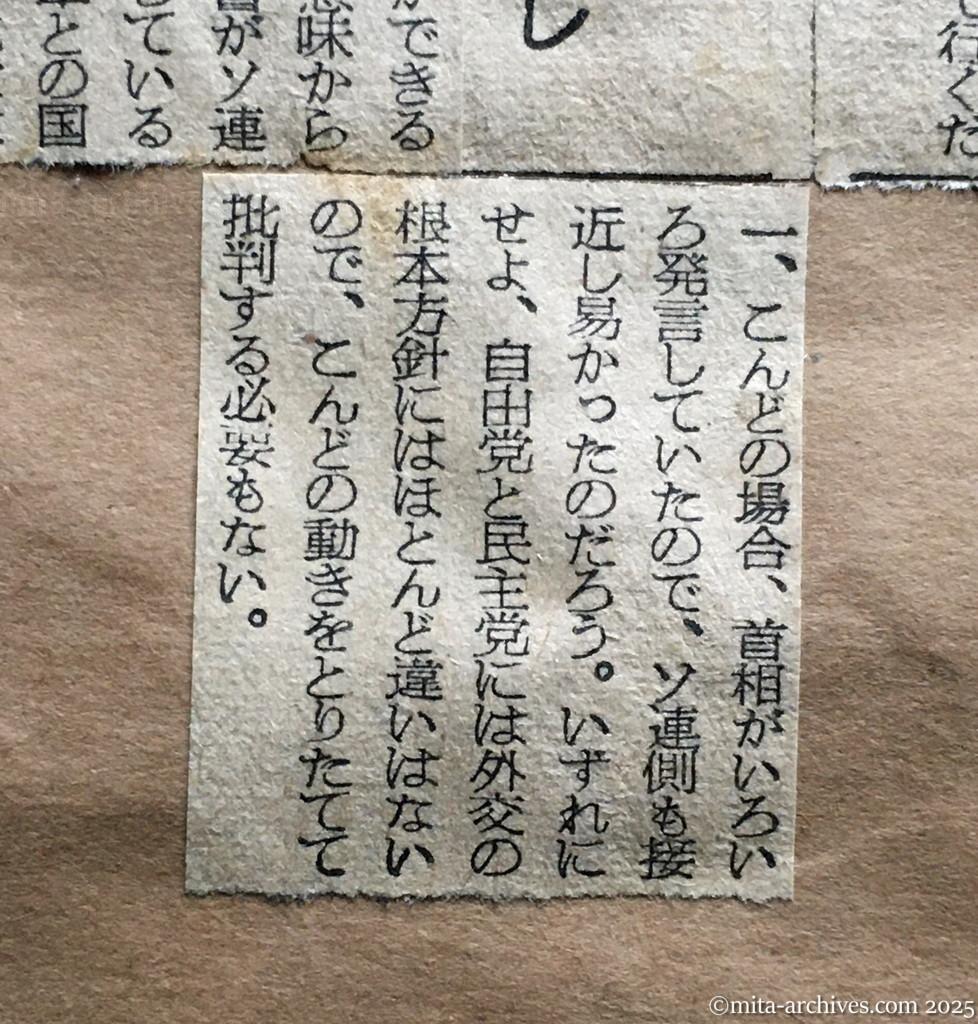 行くた
し
できる
意味から
がソ連
ている
との国
一、こんどの場合、首相がいろい
ろ発言していたので、ソ連側も接
近し易かったのだろう。いずれに
せよ、自由党と民主党には外交の
根本方針にはほとんど違いはない
ので、こんどの動きをとりたてて
批判する必要もない。
©mita-archives.com 2025